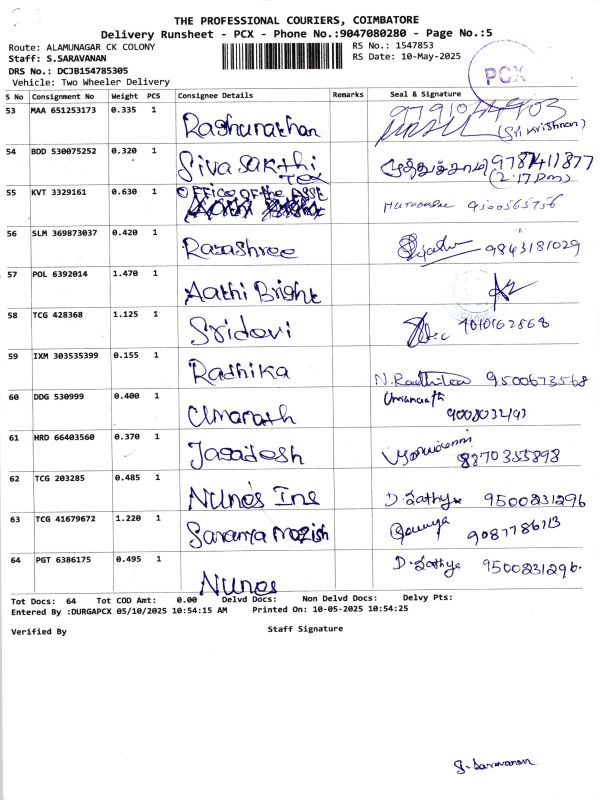 THE PROFESSIONAL COURIERS, COIMBATORE
Delivery Runsheet - PCX - Phone No.:9047080280 - Page No.:5
Route: ALAMUNAGAR CK COLONY
Staff: S.SARAVANAN
DRS No.: DCJB154785305
Vehicle: Two Wheeler Delivery
RS No.: 1547853
RS Date: 10-May-2025
PCX
S No Consignment No Weight PCS Consignee Details Remarks Seal & Signature
53 MAA 651253173 0.335 1 Raghunathan
(Sri Krishnan)
54 BDD 530075252 0.320 1 Siva Sakthi Tex முத்துச்சாமி 9787411877
(2.17 pm)
55 KVT 3329161 0.630 1 Office of the Asst 9500565756
56 SLM 369873037 0.420 1 Rajashree 9843181029
57 POL 6392014 1.470 1 Aathi Bright
58 TCG 428368 1.125 1 Sridevi
59 IXM 303535399 0.155 1 Radhika N. Radhika 9500673568
60 DDG 530999 0.400 1 Umanath Umanaath
61 HRD 66403560 0.370 1 Jagadesh 8370355898
62 TCG 203285 0.485 1 Nunes Ine D. Sathya 9500231296
63 TCG 41679672 1.220 1 Saranya Sowmya
64 PGT 6386175 0.495 1 Nunes D. Sathya 9500231296.
Tot Docs: 64 Tot COD Amt: 0.00 Delvd Docs: Non Delvd Docs: Delvy Pts:
Entered By :DURGAPCX 05/10/2025 10:54:15 AM Printed On: 10-05-2025 10:54:25
Verified By Staff Signature
S. Saravanan